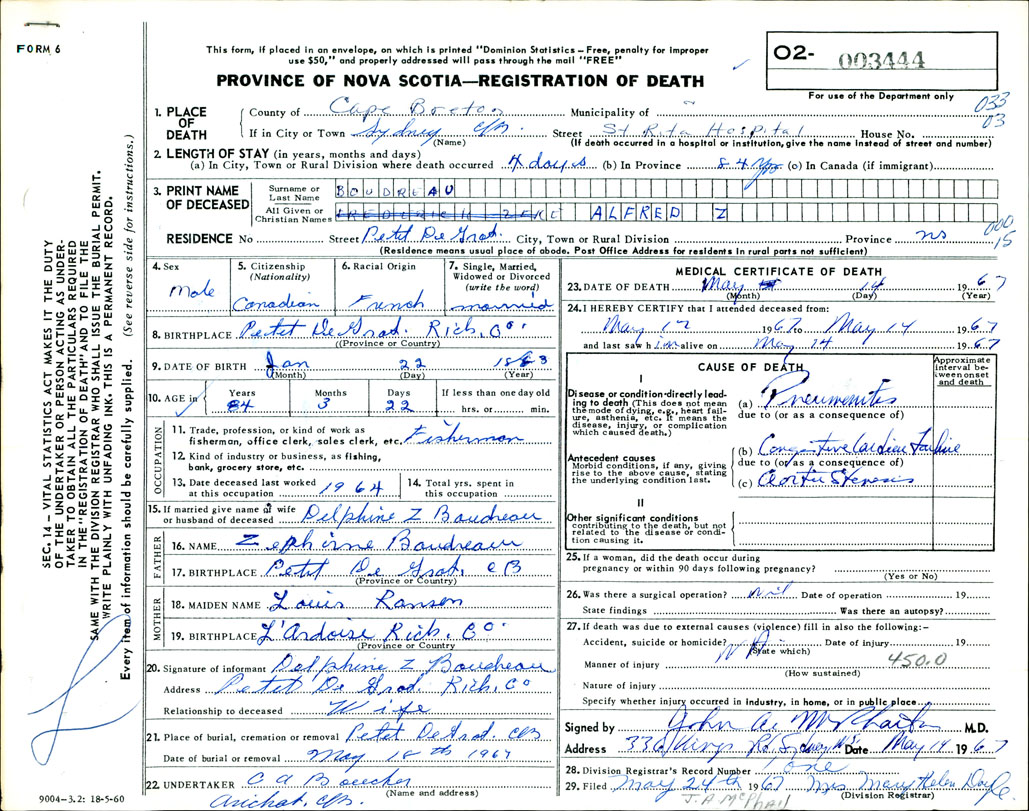 FORM 6
This form, if placed in an envelope, on which is printed "Dominion Statistics – Free, penalty for improper
use $50," and properly addressed will pass through the mail "FREE"
PROVINCE OF NOVA SCOTIA—REGISTRATION OF DEATH
O2- 003444
For use of the Department only
033
03
1. PLACE OF DEATH
County of Cape Breton Municipality of
If in City or Town Sydney CB Street St Rita Hospital House No.
(Name) (If death occurred in a hospital or institution, give name instead of street and number)
2. LENGTH OF STAY (in years, months and days)
(a) In City, Town or Rural Division where death occurred 4 days (b) In Province 84 yrs (c) In Canada (if immigrant)
3. PRINT NAME OF DECEASED
Surname or Last Name BOUDREAU
All Given or Christian Names ALFRED Z
RESIDENCE No Street Petit De Grat City, Town or Rural Division Province NS
000
15
(Residence means usual place of abode. Post Office Address for residents in rural parts not sufficient)
4. Sex Male
5. Citizenship (Nationality) Canadian
6. Racial Origin French
7. Single, Married, Widowed or Divorced (write the word) married
8. BIRTHPLACE Petit De Grat. Rich. Co.
(Province or Country)
9. DATE OF BIRTH Jan 22 1883
(Month) (Day) (Year)
10. AGE in Years 84 Months 3 Days 22 If less than one day old hrs. or min.
OCCUPATION
11. Trade, profession, or kind of work as
fisherman, office clerk, sales clerk, etc. Fisherman
12. Kind of industry or business, as fishing,
bank, grocery store, etc.
13. Date deceased last worked at this occupation 1964
14. Total yrs. spent in this occupation
15. If married give name of wife or husband of deceased Delphine Z Boudreau
FATHER
16. NAME Zephirne Boudreau
17. BIRTHPLACE Petit De Grat. CB
(Province or Country)
MOTHER
18. MAIDEN NAME Louis Ransen
19. BIRTHPLACE L'Ardoise Rich. Co.
(Province or Country)
20. Signature of informant Delphine Z Boudreau
Address Petit De Grat Rich, Co
Relationship to deceased Wife
21. Place of burial, cremation or removal Petit De Grat. CB
Date of burial or removal May 18th 1967
22. UNDERTAKER C A Boucher
(Name and address)
Arichat, CB.
9004–3.2: 18-5-60
SEC. 14 – VITAL STATISTICS ACT MAKES IT THE DUTY
OF THE UNDERTAKER OR PERSON ACTING AS UNDER-
TAKER TO OBTAIN ALL THE PARTICULARS REQUIRED
IN THE "REGISTRATION OF DEATH" AND TO FILE THE
SAME WITH THE DIVISION REGISTRAR WHO SHALL ISSUE THE BURIAL PERMIT.
WRITE PLAINLY WITH UNFADING INK. THIS IS A PERMANENT RECORD.
Every item of information should be carefully supplied. (See reverse side for instructions.)
MEDICAL CERTIFICATE OF DEATH
23. DATE OF DEATH May 14 1967
(Month) (Day) (Year)
24. I HEREBY CERTIFY that I attended deceased from:
May 12 1967 to May 14 1967
and last saw him alive on May 14 1967
CAUSE OF DEATH
Approximate interval between onset and death
I
Disease or condition directly lead-
ing to death (This does not mean
the mode of dying, e.g., heart fail-
ure, asthenia, etc. It means the
disease, injury, or complication
which caused death.)
(a) Pneumonitis
due to (or as a consequence of)
Antecedent causes
Morbid conditions, if any, giving
rise to the above cause, stating
the underlying condition last.
(b) Congestive Cardiac Failure
due to (or as a consequence of)
(c) Aortic Stenosis
II
Other significant conditions
contributing to the death, but not
related to the disease or condi-
tion causing it.
25. If a woman, did the death occur during
pregnancy or within 90 days following pregnancy?
(Yes or No)
26. Was there a surgical operation? nil Date of operation 19
State findings Was there an autopsy?
27. If death was due to external causes (violence) fill in also the following:-
Accident, suicide or homicide? Date of injury 19
(State which)
Manner of injury 450.0
(How sustained)
Nature of injury
Specify whether injury occurred in industry, in home, or in public place
Signed by John A. McPhail M.D.
Address 336 Kings Rd, Sydney NS Date May 14 1967
28. Division Registrar's Record Number one
29. Filed May 24th 1967 Mrs Mary Helen Doyle
J. A McPhail (Division Registrar)